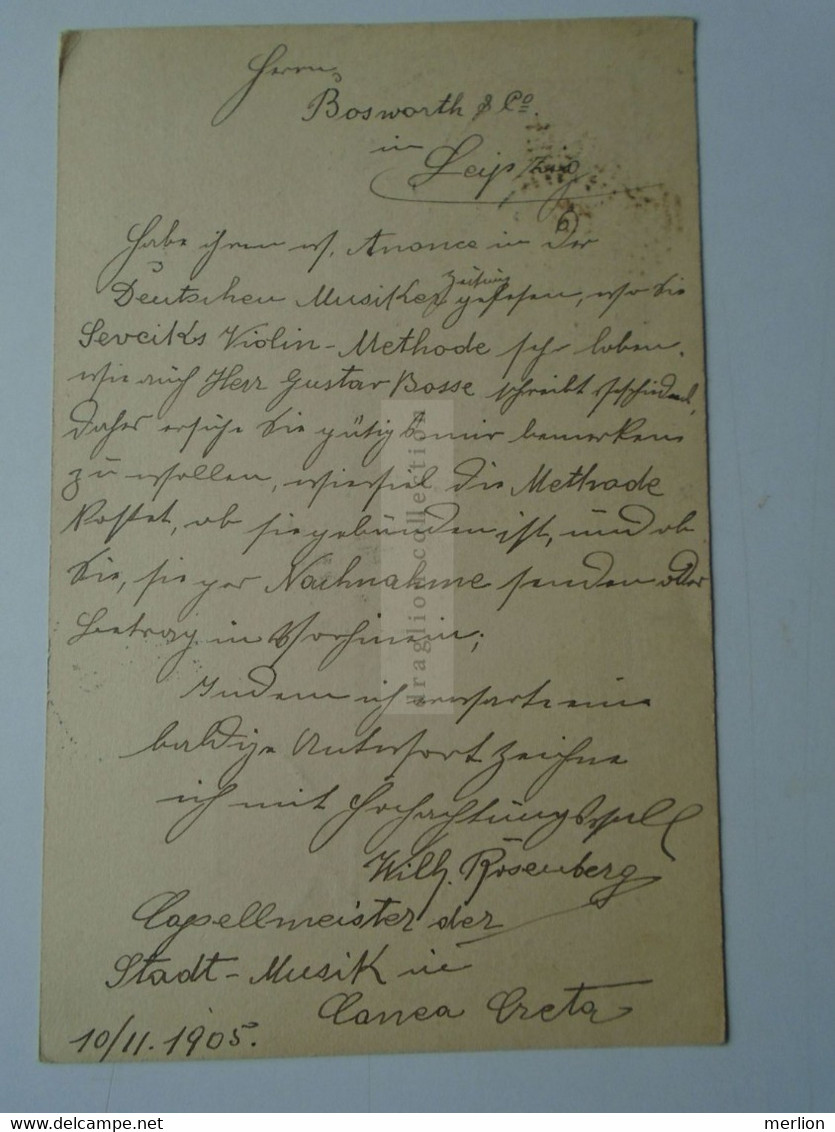 Herrn
Bosworth & Co.
in
Leipzig
Habe ihren w. Anonce in der
Deutschen Musiker Zeitung gelesen, wo Sie
Sevciks Violin-Methode sehr loben,
wie auch Herr Gustav Bosse schreibt
daher ersuche Sie gütigst mir bemerken
zu wollen, wieviel die Methode
kostet, ob sie gebunden ist, und ob
Sie, sie per Nachnahme senden oder
Betrag im Vorhinein;
Indem ich erwarte eine
baldige Antwort zeichne
ich mit Hochachtungsvoll
Wilh. Rosenberg
Capellmeister der
Stadt-Musik in
Canea Creta
10/II. 1905.
draglion collection
www.delcampe.net
merlion